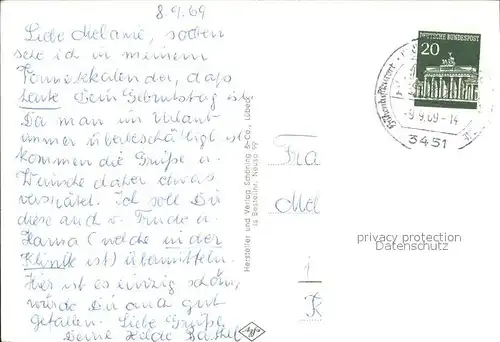 8.9.69
Liebe Melanie, soeben
sehe ich in meinem
Familienkalender, daß
heute Dein Geburtstag ist.
Da man im Urlaub
immer überbeschäftigt ist
kommen die Grüße u.
Wünsche daher etwas
verspätet. Ich soll Dir
diese auch v. Trude u.
Hanna (welche in der
Klinik ist) übermitteln.
Hier ist es einzig schön,
würde Dir auch gut
gefallen. Liebe Grüße
Deine Helde Barthel
Hersteller und Verlag Schöning & Co., Lübeck
is Bestellnr. Neuso 99
DEUTSCHE BUNDESPOST
20
-9.9.69-14
3451
Fra
Mel
privacy protection
Datenschutz